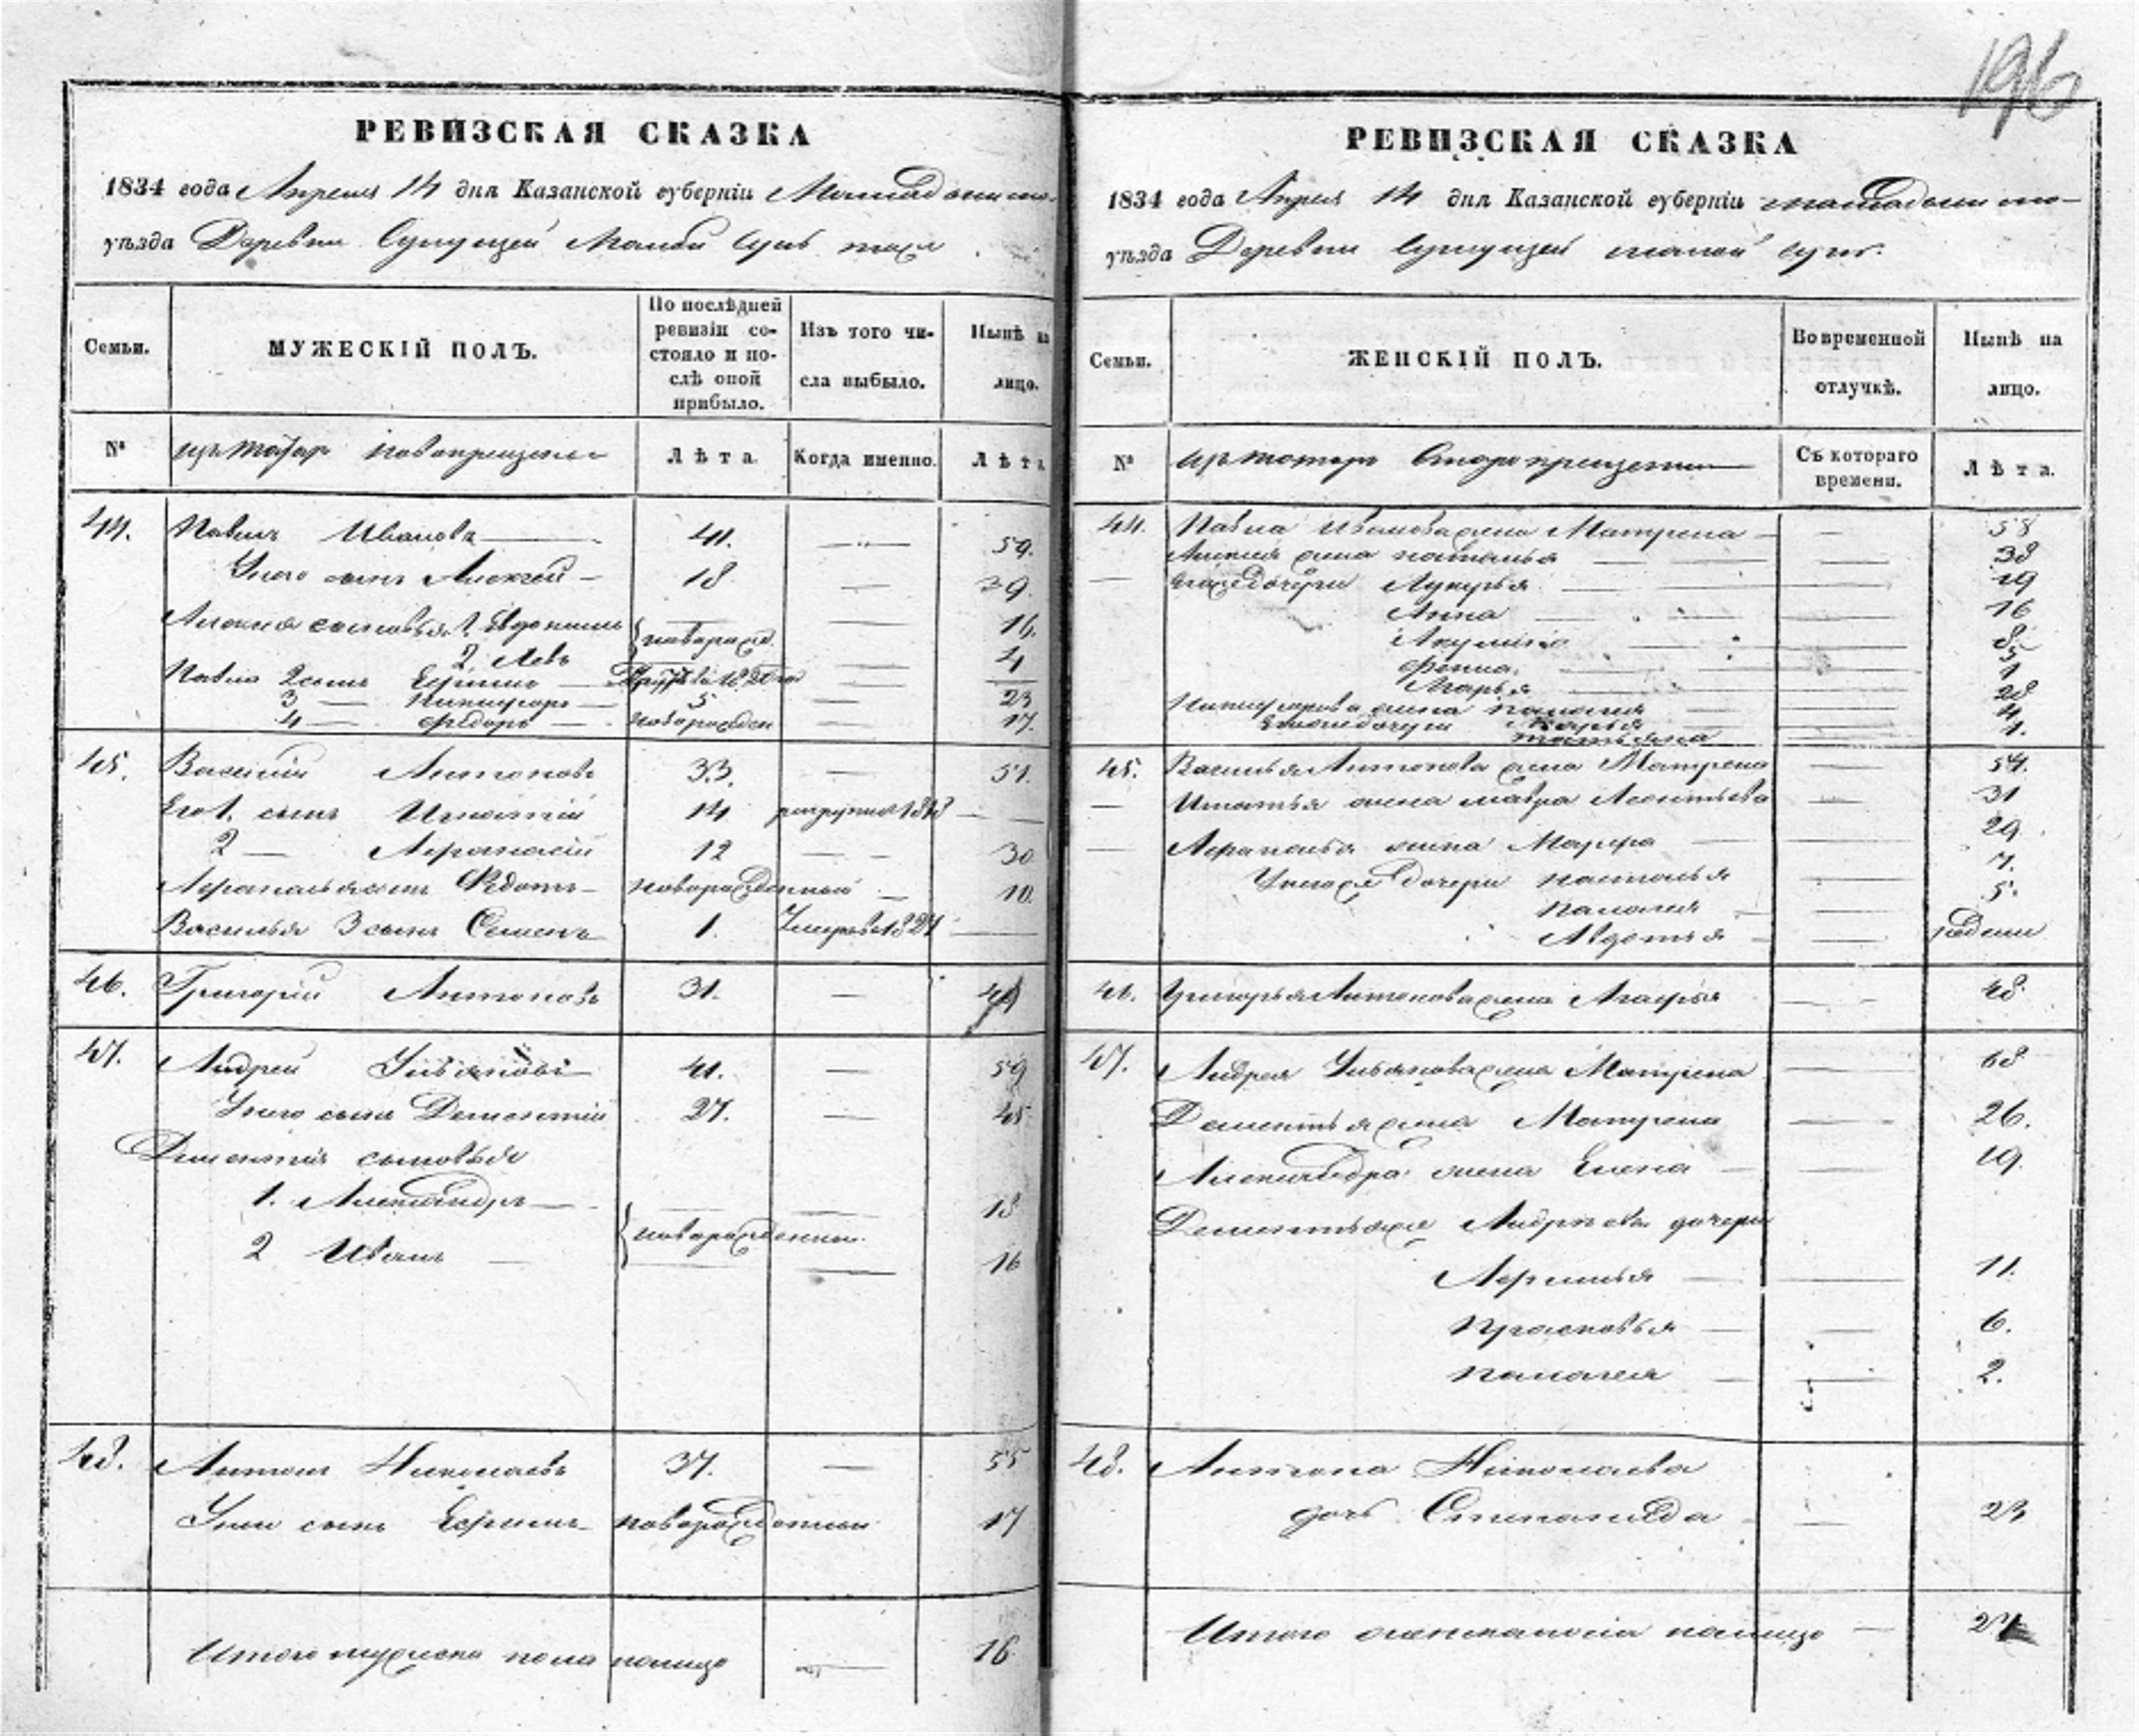 196
РЕВИЗСКАЯ СКАЗКА
1834 года Апреля 14 дня Казанской губерніи
уѣзда Деревни
Семьи.
МУЖЕСКІЙ ПОЛЪ.
По послѣдней ревизіи состояло и послѣ оной прибыло.
Изъ того числа выбыло.
Нынѣ на лицо.
№
изъ татаръ новокрещены
Лѣта
Когда именно.
Лѣта
44. Павелъ Ивановъ 41. 59.
У него сынъ Алексей 18 39.
Алексея сыновья 1. Евдокимъ новорожд. 16.
2. Левъ 4
Павла 2 сынъ Ефимъ
3 — Никифоръ — 5 23
4 — Федоръ — новорожден 17.
45. Василій Антоновъ 33. 51.
Его 1. сынъ Игнатій 14 рекрут 1818
2 — Афанасій 12 30.
Афанасья сынъ Федотъ новорожденный 10.
Василья 3 сынъ Семенъ 1. Умеръ в 1821
46. Григорій Антоновъ 31. 49
47. Андрей Ульяновъ 41. 59
У него сынъ Дементій 27. 45
Дементія сыновья
1. Александръ 18
новорожденные
2 Иванъ 16
48. Антонъ Николаевъ 37. 55
У него сынъ Ефимъ новорожденный 17
Итого мужеска пола налицо 16
РЕВИЗСКАЯ СКАЗКА
1834 года Апреля 14 дня Казанской губерніи
уѣзда Деревни
Семьи.
ЖЕНСКІЙ ПОЛЪ.
Во временной отлучкѣ.
Нынѣ на лицо.
№
изъ татаръ Старокрещены
Съ котораго времени.
Лѣта.
44. Павла Иванова жена Матрена 58
Алексея жена Наталья 38
Его же дочери Лукерья 19
Анна 16
Акулина 8
Фекла 5
Марья 1
Никифорова жена Палагея 28
Его же дочери Марья 4
Татьяна 1.
45. Василья Антонова жена Матрена 54.
Игнатья жена Мавра Леонтьева 31
Афанасья жена Марфа 29.
У него же дочери Наталья 7.
Палагея 5.
Авдотья
46. Григорья Антонова жена Агафья 48
47. Андрея Ульянова жена Матрена 68
Дементья жена Матрена 26.
Александра жена Елена 19.
Дементья же Андреева дочери
Афимья 11.
Прасковья 6.
Палагея 2.
48. Антона Николаева
дочь Степанида 23
Итого женска пола налицо